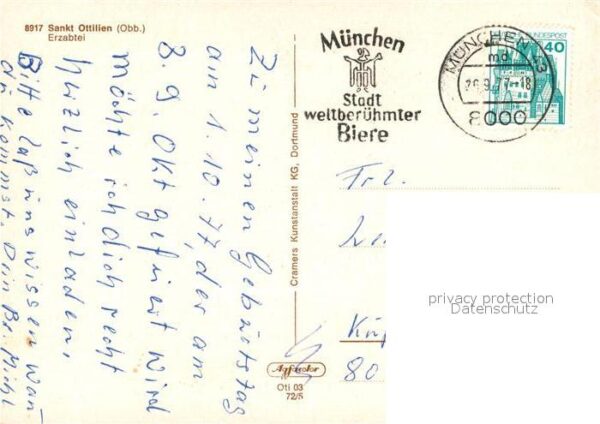 8917 Sankt Ottilien (Obb.)
Erzabtei
Zu meinen Gebürtstag
am 1.10.77, der am
8.9. Okt gefeiert wird
möchte ich dich recht
herzlich einladen,
Bitte laß uns wissen wan
du kommst. Dein Br. Michl
Cramers Kunstanstalt KG, Dortmund
Agfacolor
Oti 03
72/5
München
Stadt
weltberühmter
Biere
MÜNCHEN
md
26.9.77-18
8000
BUNDESPOST
40
Frl.
80
privacy protection
Datenschutz